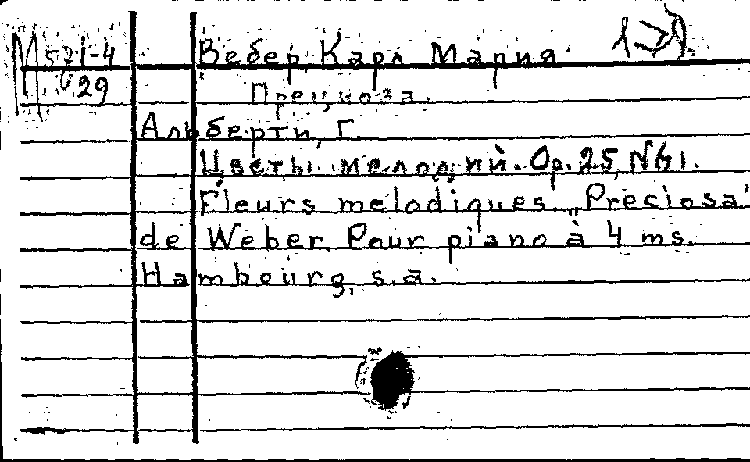 М 521-4 Вебер, Карл Мария.
29 Прециоза.
Альберти, Г.
Цветы мелодий. Op. 25, №61.
Fleurs melodiques „Preciosa"
de Weber. Pour piano à 4 ms.
Hambourg, s.a.